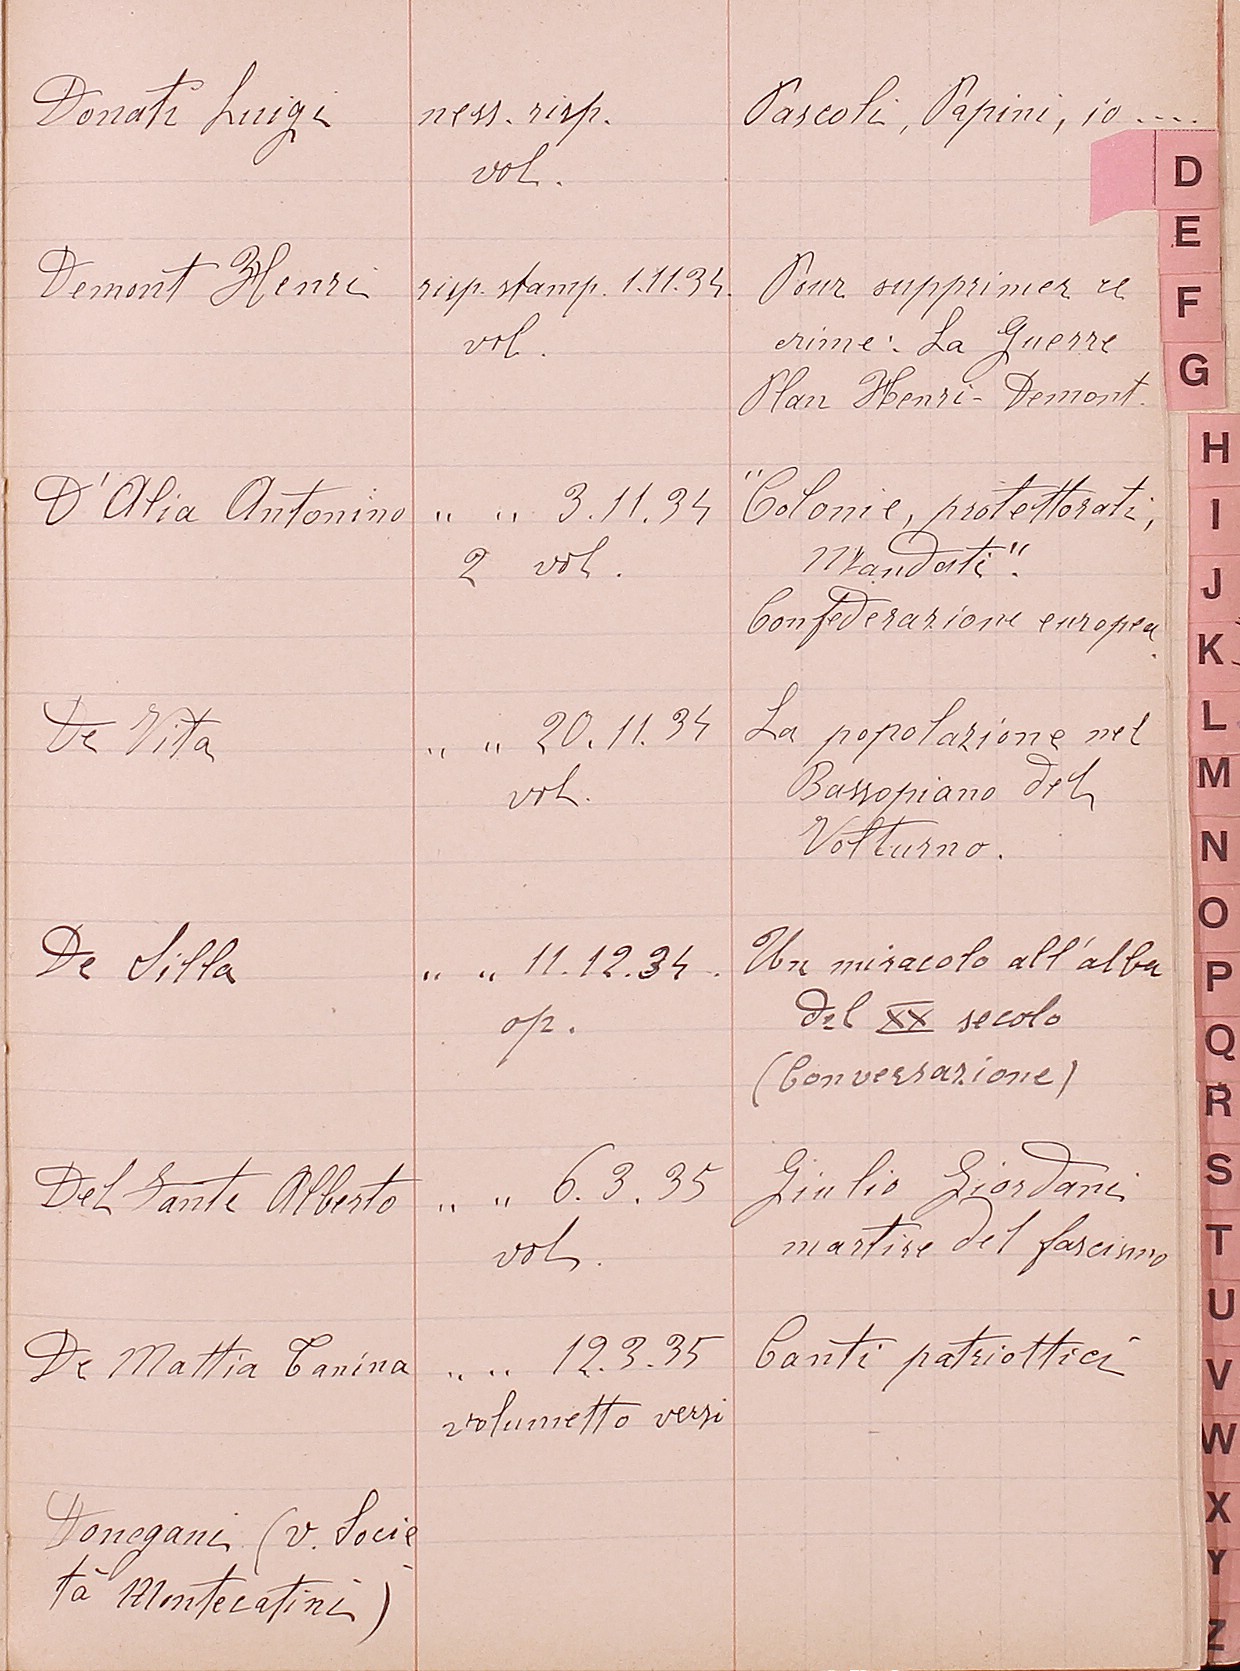 Donati Luigi ness. risp. Pascoli, Papini, io ....
vol.
Demont Henri risp. stamp. 1.11.34. Pour supprimer ce
vol. crime: La Guerre
Plan Henri-Demont.
D'Alia Antonino " " 3.11.34 "Colonie, protettorati,
2 vol. Mandati".
Confederazione europea.
De Vita " " 20.11.34 La popolazione nel
vol. Bassopiano del
Volturno.
De Silla " " 11.12.34. Un miracolo all'alba
op. del XX secolo
(Conversazione)
Del Sante Alberto " " 6.3.35 Giulio Giordani
vol. martire del fascismo
De Mattia Tanina " " 12.3.35 Canti patriottici
volumetto versi
Donegani (v. Socie
tà Montecatini)
D
E
F
G
H
I
J
K
L
M
N
O
P
Q
R
S
T
U
V
W
X
Y
Z